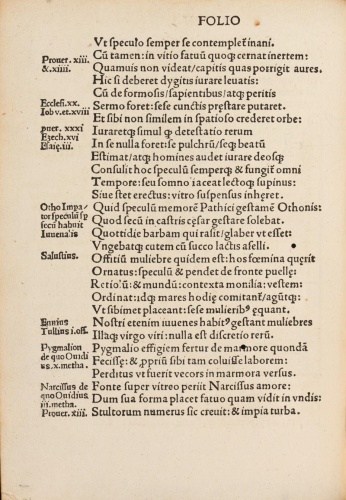 FOLIO
Vt speculo semper se contempleť inani.
Prouer. xiii. &. xiiii.
Cũ tamen: in vitio fatuũ quoqʒ cernat inertem:
Quamuis non videat/capitis quas porrigit aures.
Hic si deberet dygitis iurare leuatis:
Cũ de formosis/sapientibus/atqʒ peritis
Ecclesi. xx.
Iob v. et. xviii
Sermo foret: sese cunctis pręstare putaret.
Et sibi non similem in spatioso crederet orbe:
puer. xxxi
Ezech. xvi
Esaię. iii.
Iuraretqʒ simul qʒ detestatio rerum
In se nulla foret: se pulchrũ/seqʒ beatũ
Estimat/atqʒ homines audet iurare deosqʒ
Consulit hoc speculũ semperqʒ & fungiť omni
Tempore: seu somno iaceat lectoqʒ supinus:
Siue stet erectus: vitro suspensus inheret.
Otho Impator speculũ sp secũ habuit
Iuuenalis
Quid speculũ memorẽ Pathici gestamẽ Othonis:
Quod secũ in castris cęsar gestare solebat.
Quottidie barbam qui rasit/glaber vt esset:
Vngebatqʒ cutem cũ succo lactis aselli.
Salustius.
Offitiũ muliebre quidem est: hos fœmina quęrit
Ornatus: speculũ & pendet de fronte puellę:
Retiolũ: & mundũ: contexta monilia: vestem:
Ordinat: idqʒ mares hodię comitanť/agũtqʒ:
Vt sibimet placeant: sese mulieribꝰ ęquant.
Ennius
Tullius i. off.
Nostri etenim iuuenes habitꝰ gestant muliebres
Illaqʒ virgo viri: nulla est discretio rerũ.
Pygmalion de quo Ouidius. x. metha.
Pygmalio effigiem fertur de marmore quondã
Fecisse: & ꝓpriũ sibi tam coluisse laborem:
Perditus vt fuerit vecors in marmora versus.
Narcissus de quo Ouidius iii. metha.
Fonte super vitreo periit Narcissus amore:
Dum sua forma placet fatuo quam vidit in vndis:
Prouer. xiii.
Stultorum numerus sic creuit: & impia turba.